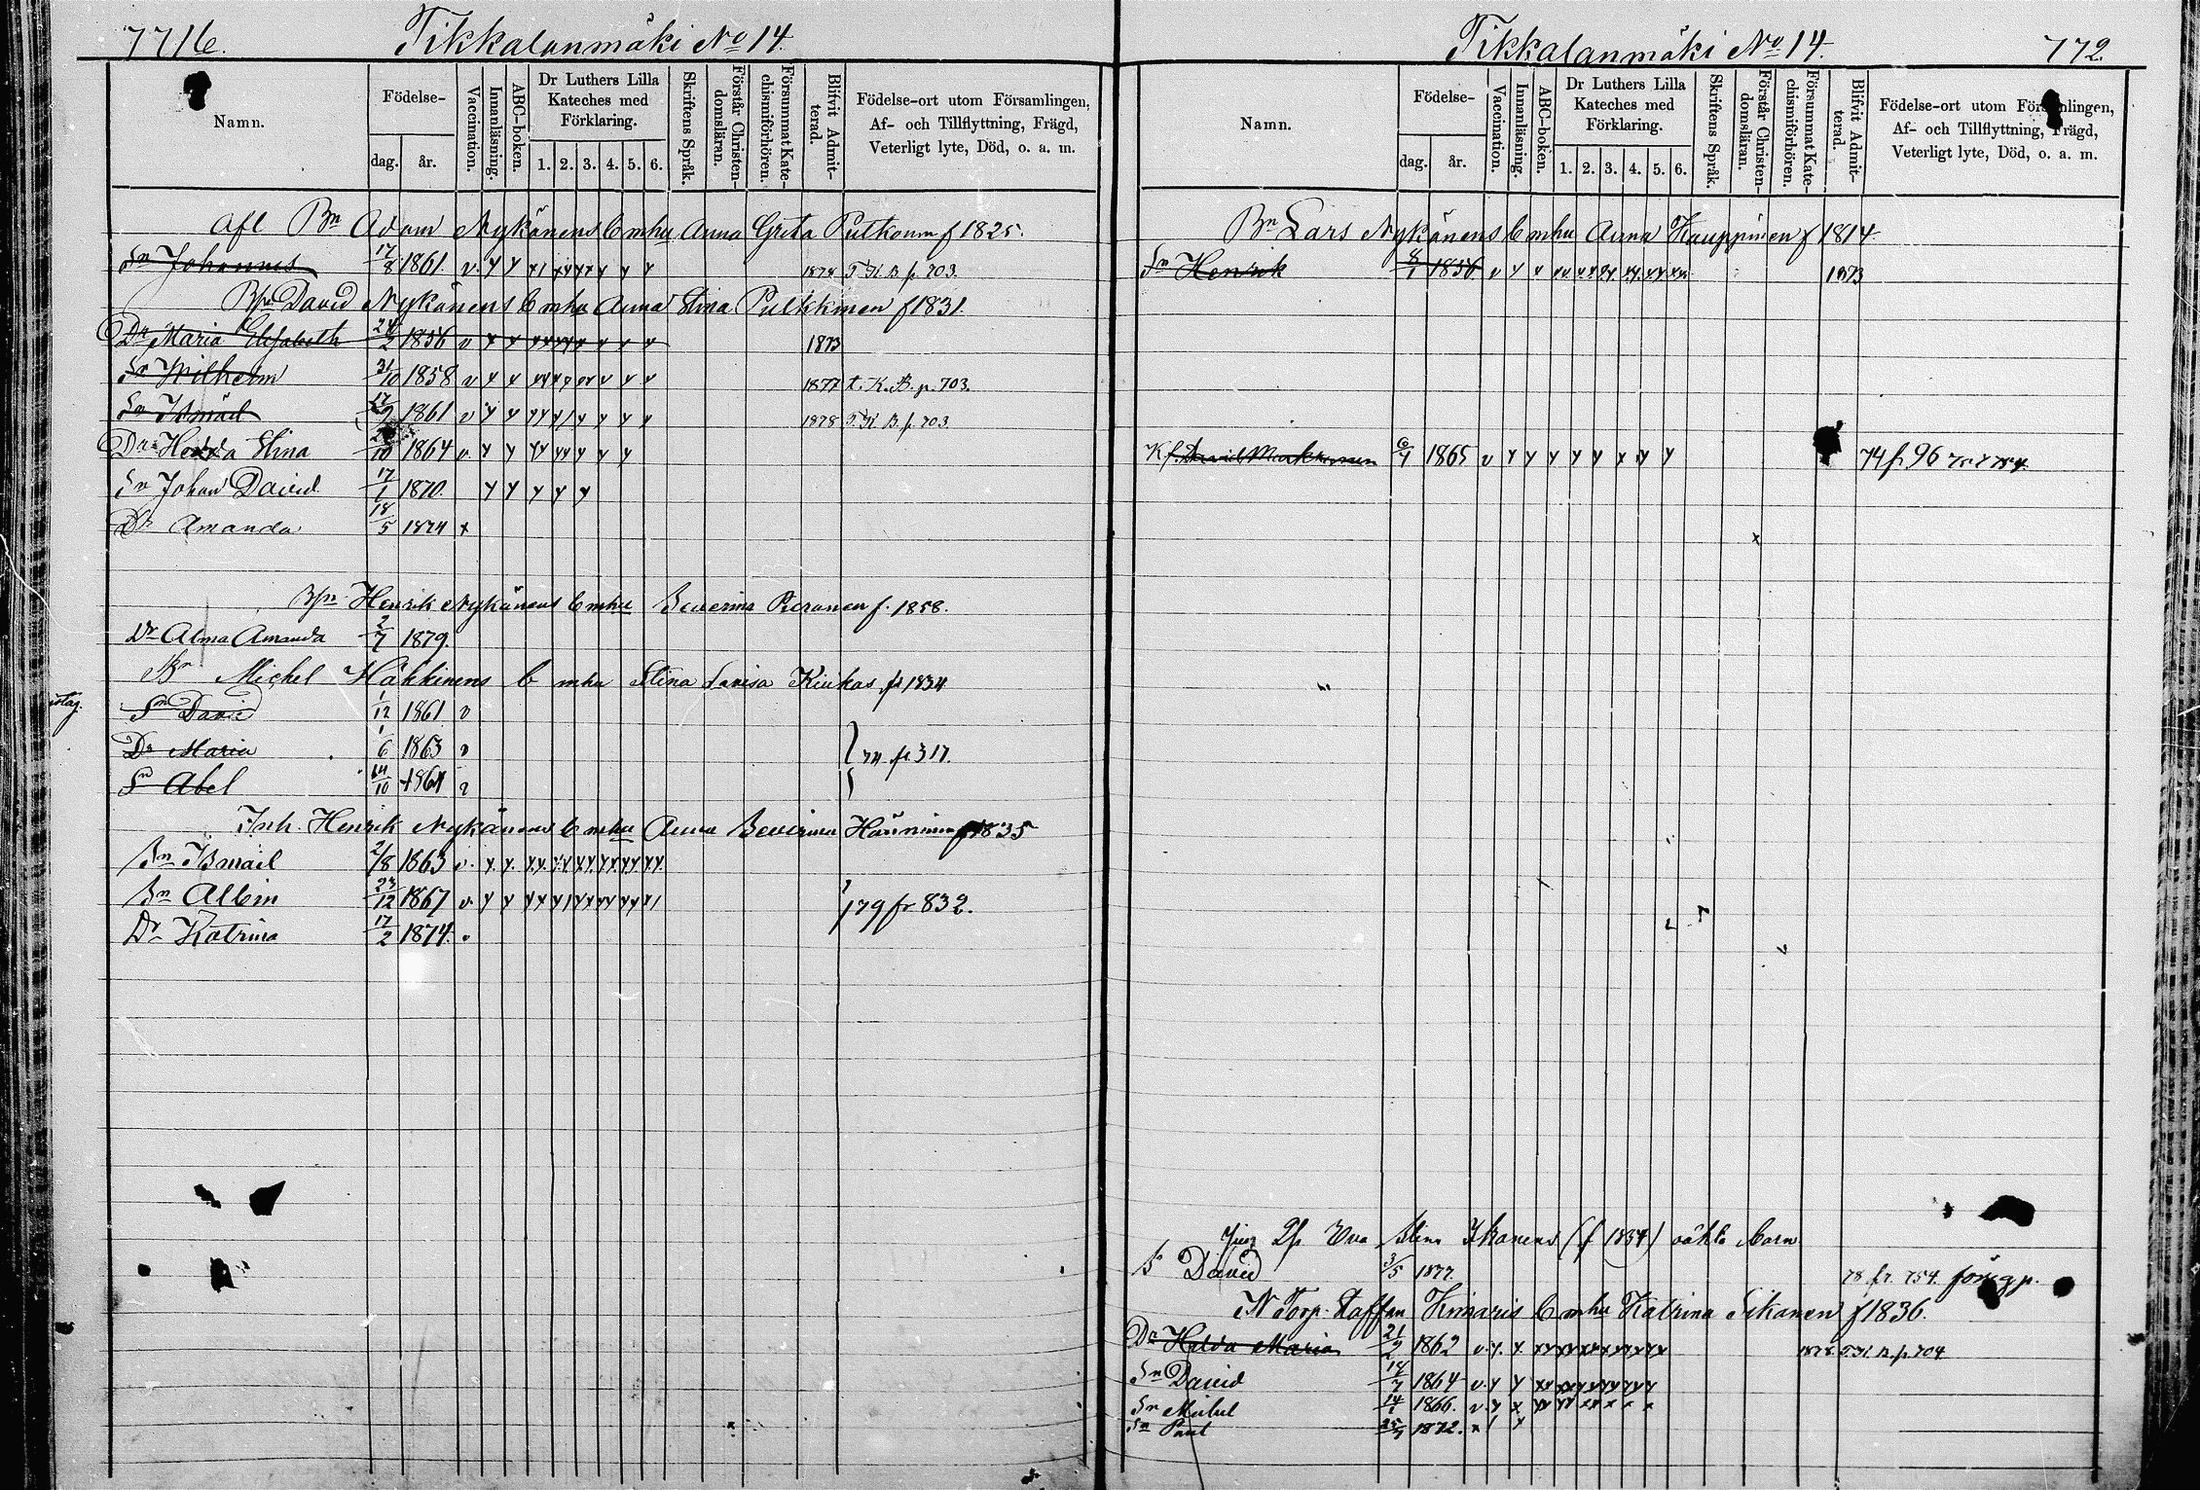 771b. Tikkalanmäki No 14.
Namn.
Födelse-
dag. år.
Vaccination.
Innanläsning.
ABC-boken.
Dr Luthers Lilla Kateches med Förklaring.
1. 2. 3. 4. 5. 6.
Skriftens Språk.
Förstår Christendomsläran.
Försummat Katechismiförhören.
Blifvit Admitterad.
Födelse-ort utom Församlingen,
Af- och Tillflyttning, Frägd,
Veterligt lyte, Död, o. a. m.
Afl Bn Adam Nykänens b mhu Anna Greta Putkonen f 1825.
Sn Johannes 17/8 1861. v. 1878 T. K. B p. 703.
Bn David Nykänens b mhu Anna Stina Pulkkinen f 1831.
Dr Maria Elisabeth 24/2 1856 v 1873
Sn Wilhelm 31/10 1858 v 1877 t. K. B. p. 703.
Sn Ismael 1861 v 1878 T. K B p. 703.
Dr Hedda Stina /10 1864 v
Sn Johan David 17/1 1870.
Dr Amanda 18/5 1874 x
Bn Henrik Nykänens b mhu Severina Piironen f. 1858.
Dr Alma Amanda 2/7 1879.
Bn Michel Häkkinens b mhu Stina Lovisa Kiukas f 1834
Sn David 1/12 1861 v
Dr Maria 1/6 1863 v 74 fr 317.
Sn Abel 14/10 1864 v
Inh. Henrik Nykänens b mhu Anna Severina Hänninen f 1835
Sn Ismael 2/8 1863 v.
Sn Albin 23/12 1867 v. 79 fr 832.
Dr Katrina 17/2 1874.
Tikkalanmäki No 14. 772.
Namn.
Födelse-
dag. år.
Vaccination.
Innanläsning.
ABC-boken.
Dr Luthers Lilla Kateches med Förklaring.
1. 2. 3. 4. 5. 6.
Skriftens Språk.
Förstår Christendomsläran.
Försummat Katechismiförhören.
Blifvit Admitterad.
Födelse-ort utom Församlingen,
Af- och Tillflyttning, Frägd,
Veterligt lyte, Död, o. a. m.
Bn Lars Nykänens b mhu Anna Kauppinen f 1814
Sn Henrik 8/1 1856 v 1873
David 6/1 1865 v 74 fr 96
Eva Stina Ikonens (f 1834) oäkta barn
S David 3/5 1877. 78 fr. 754. föregp.
N Torp. Staffan b mhu Katrina f 1836.
Dr Hedda Maria 21/2 1862 v. 1878. T. K. B. p. 704
Sn David 18/7 1864 v.
Sn Mickel 14/1 1866. v
Sn Paul 1872.